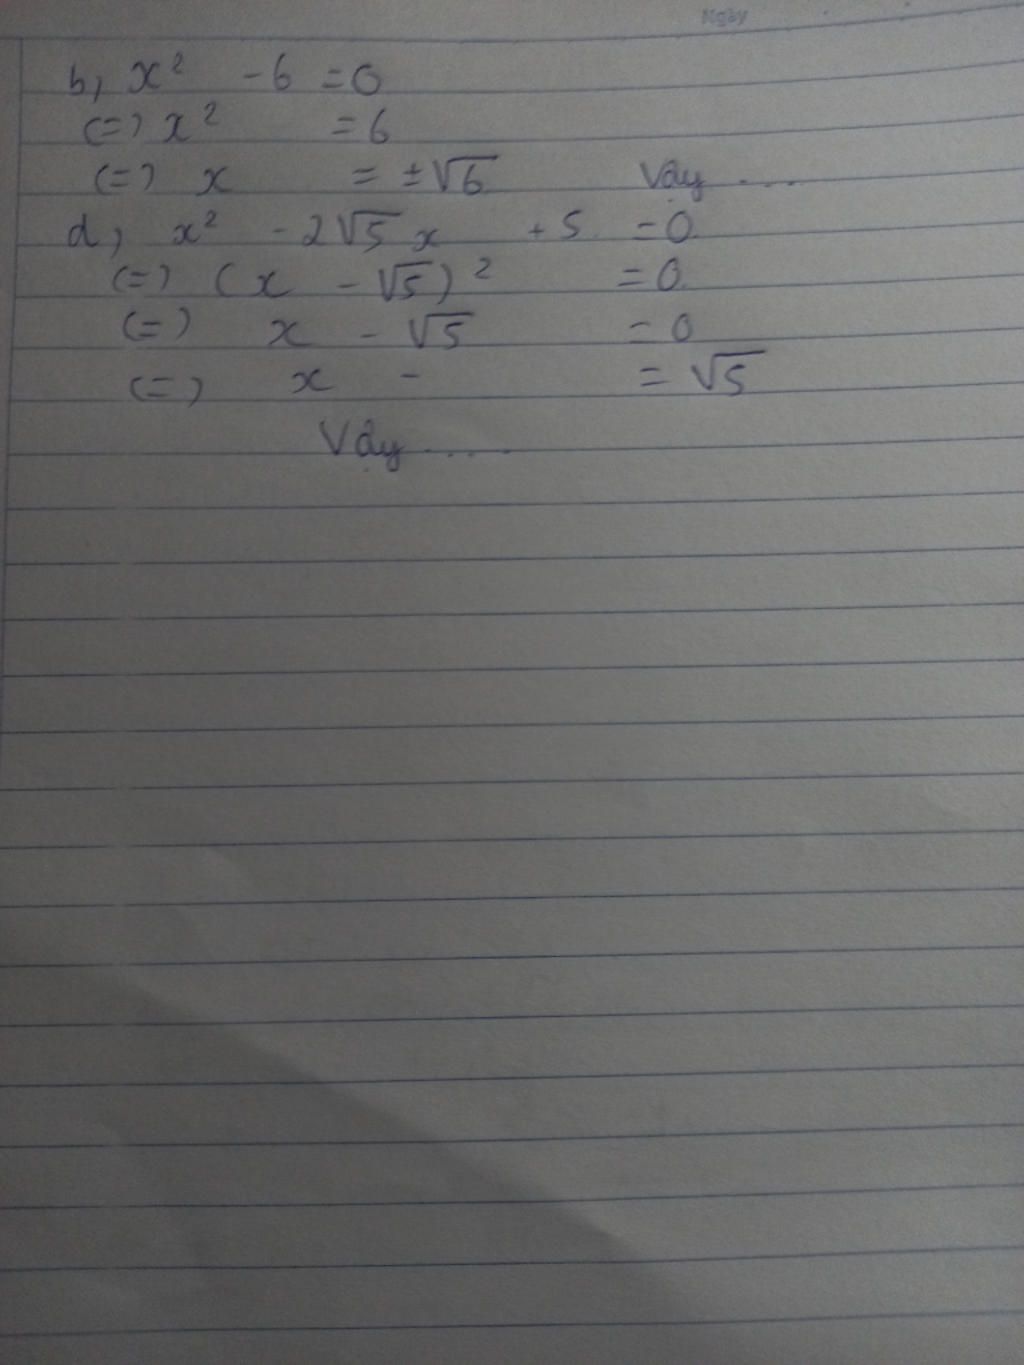 Ngày
b, x² - 6 = 0
(=) x² = 6
(=) x = ±√6 Vậy ....
d, x² - 2√5 x + 5 = 0
(=) (x - √5)² = 0
(=) x - √5 = 0
(=) x - = √5
Vậy .....